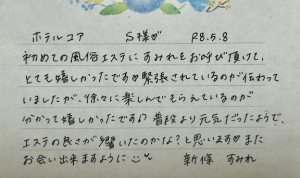 ホテルコア S様♡ R8.5.8
初めての風俗エステにすみれをお呼び頂けて、
とても嬉しかったです♡緊張されているのが伝わって
いましたが、徐々に楽しんでもらえているのが
分かって嬉しかったです!♪普段より元気だったようで、
エステの良さが響いたのかな?と思います♡また
お会い出来ますように
新條 すみれ